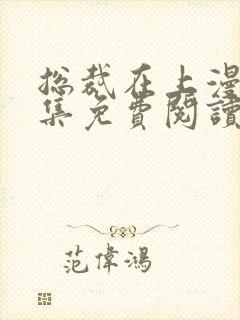 总裁在上漫
集免費閱讀
范偉鴻